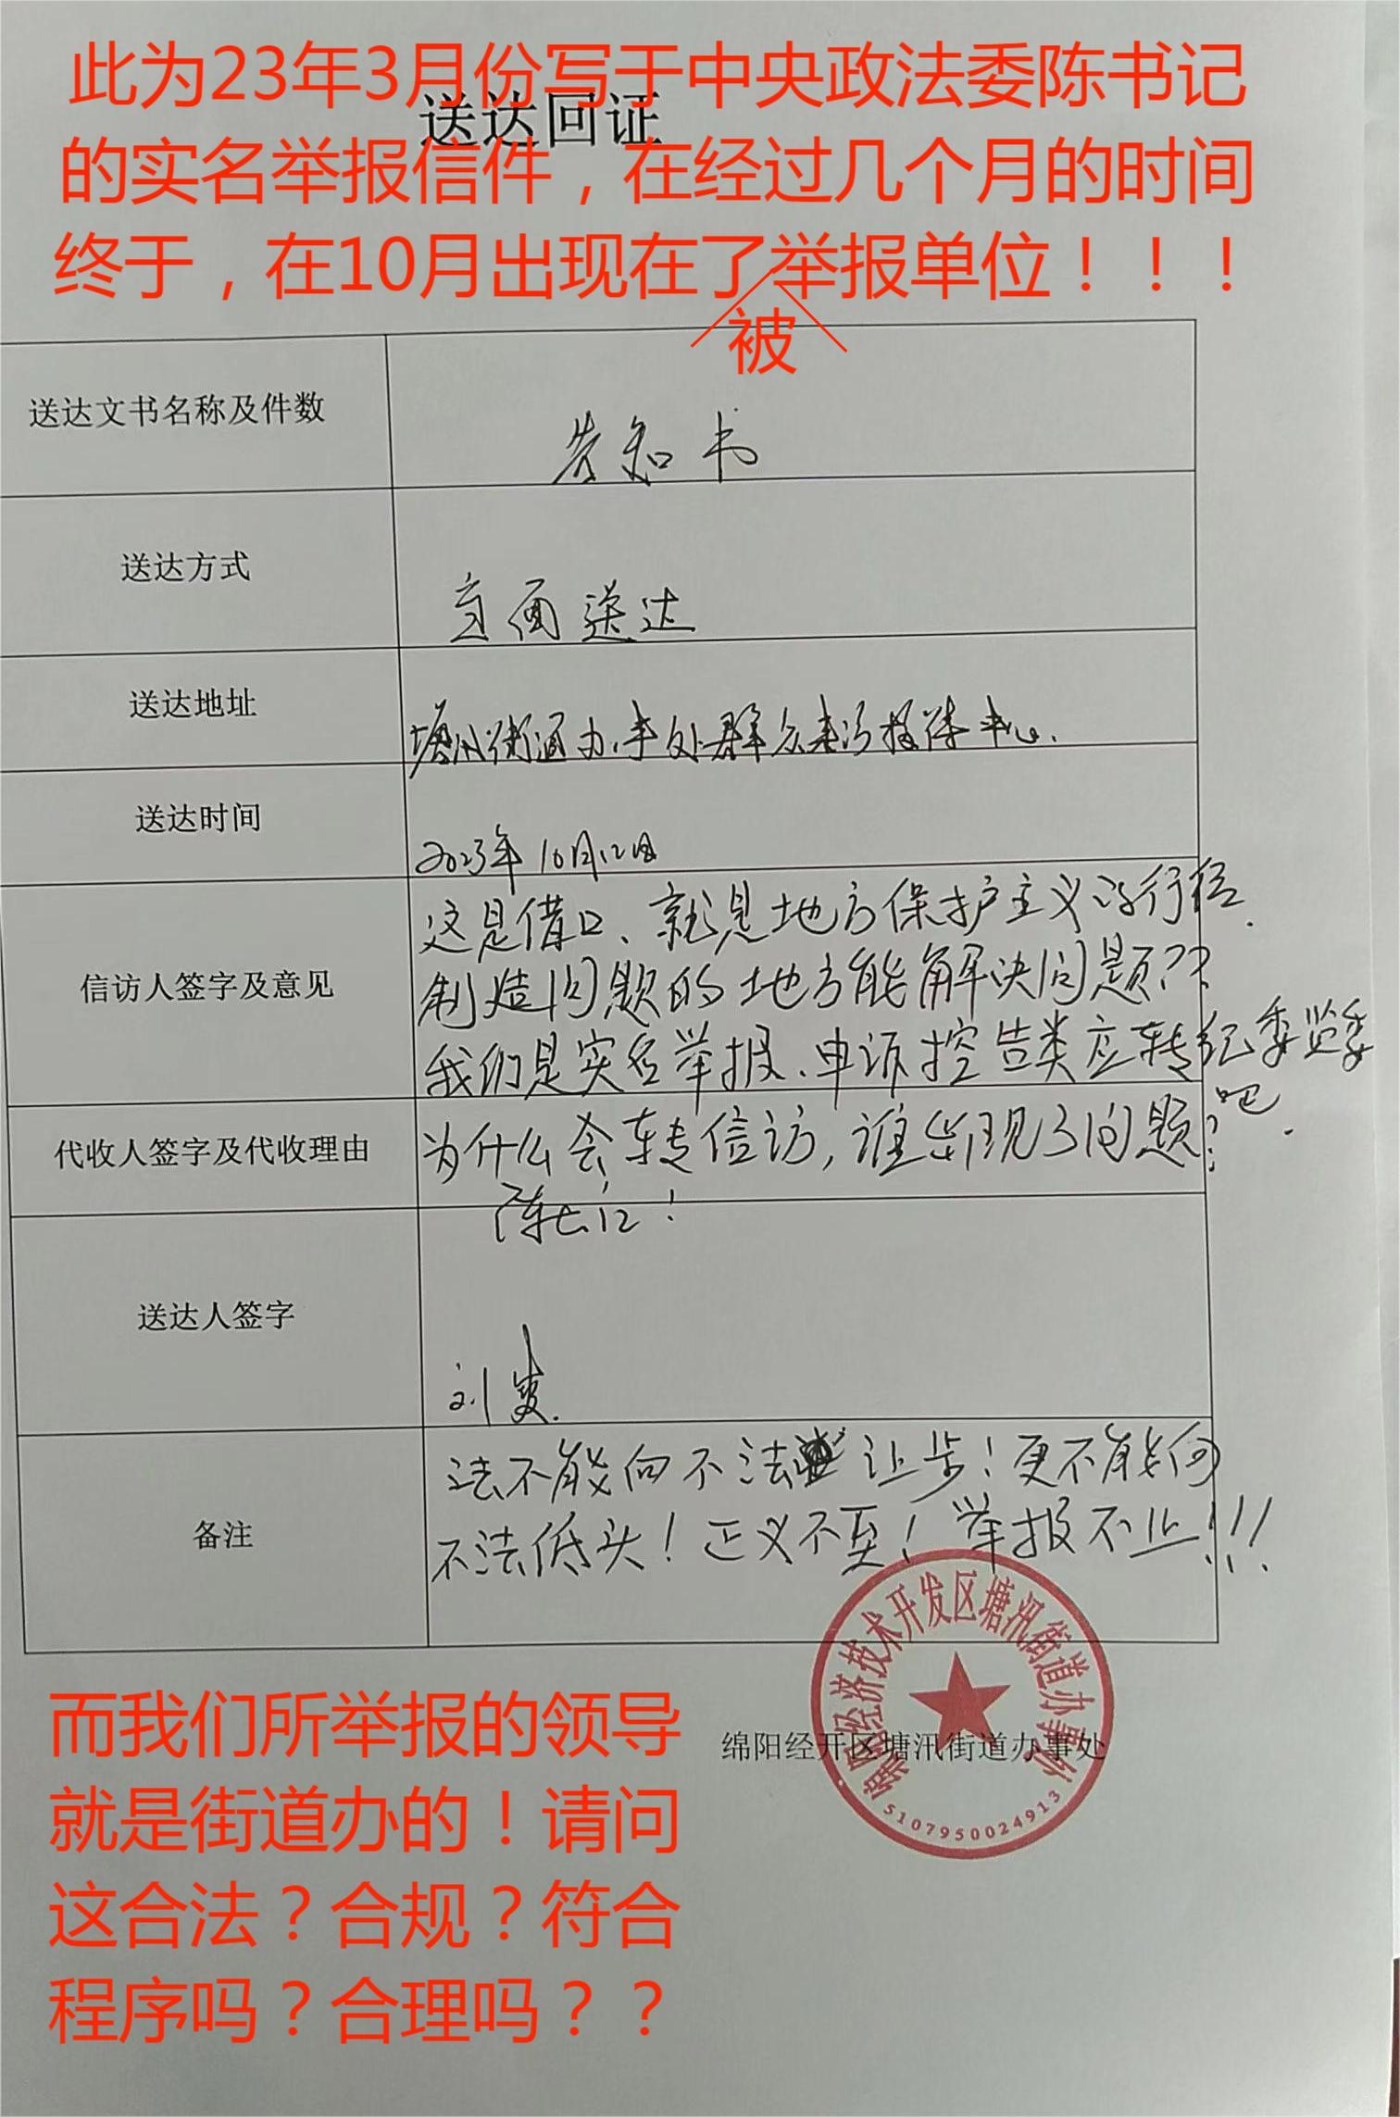 此为23年3月份写于中央政法委陈书记
送达回证
的实名举报信件，在经过几个月的时间
终于，在10月出现在了举报单位！！！
被
送达文书名称及件数
告知书
送达方式
当面送达
送达地址
塘汛街道办事处群众来访接待中心.
送达时间
2023年10月12日
信访人签字及意见
这是借口、就是地方保护主义的行径.
制造问题的地方能解决问题??
我们是实名举报、申诉控告类应转纪委监委
吧.
代收人签字及代收理由
为什么会转信访,谁出现了问题?
送达人签字
刘
备注
法不能向不法让步!更不能向
不法低头!正义不至!举报不止!!!
绵阳经济技术开发区塘汛街道办事处
绵阳经开区塘汛街道办事处
5107950024913
而我们所举报的领导
就是街道办的！请问
这合法？合规？符合
程序吗？合理吗？？